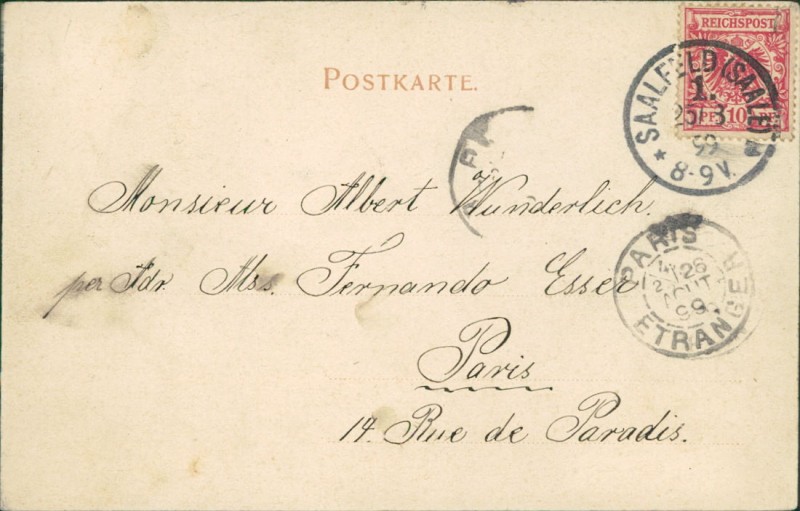 REICHSPOST
PF 10 PF
SAALFELD (SAALE)
1.
25/8
99
* 8-9V.
POSTKARTE.
Monsieur Albert Wunderlich.
per Adr. Mss. Fernando Esser
Paris
14. Rue de Paradis.
PARIS
26
AOUT
99
ETRANGER